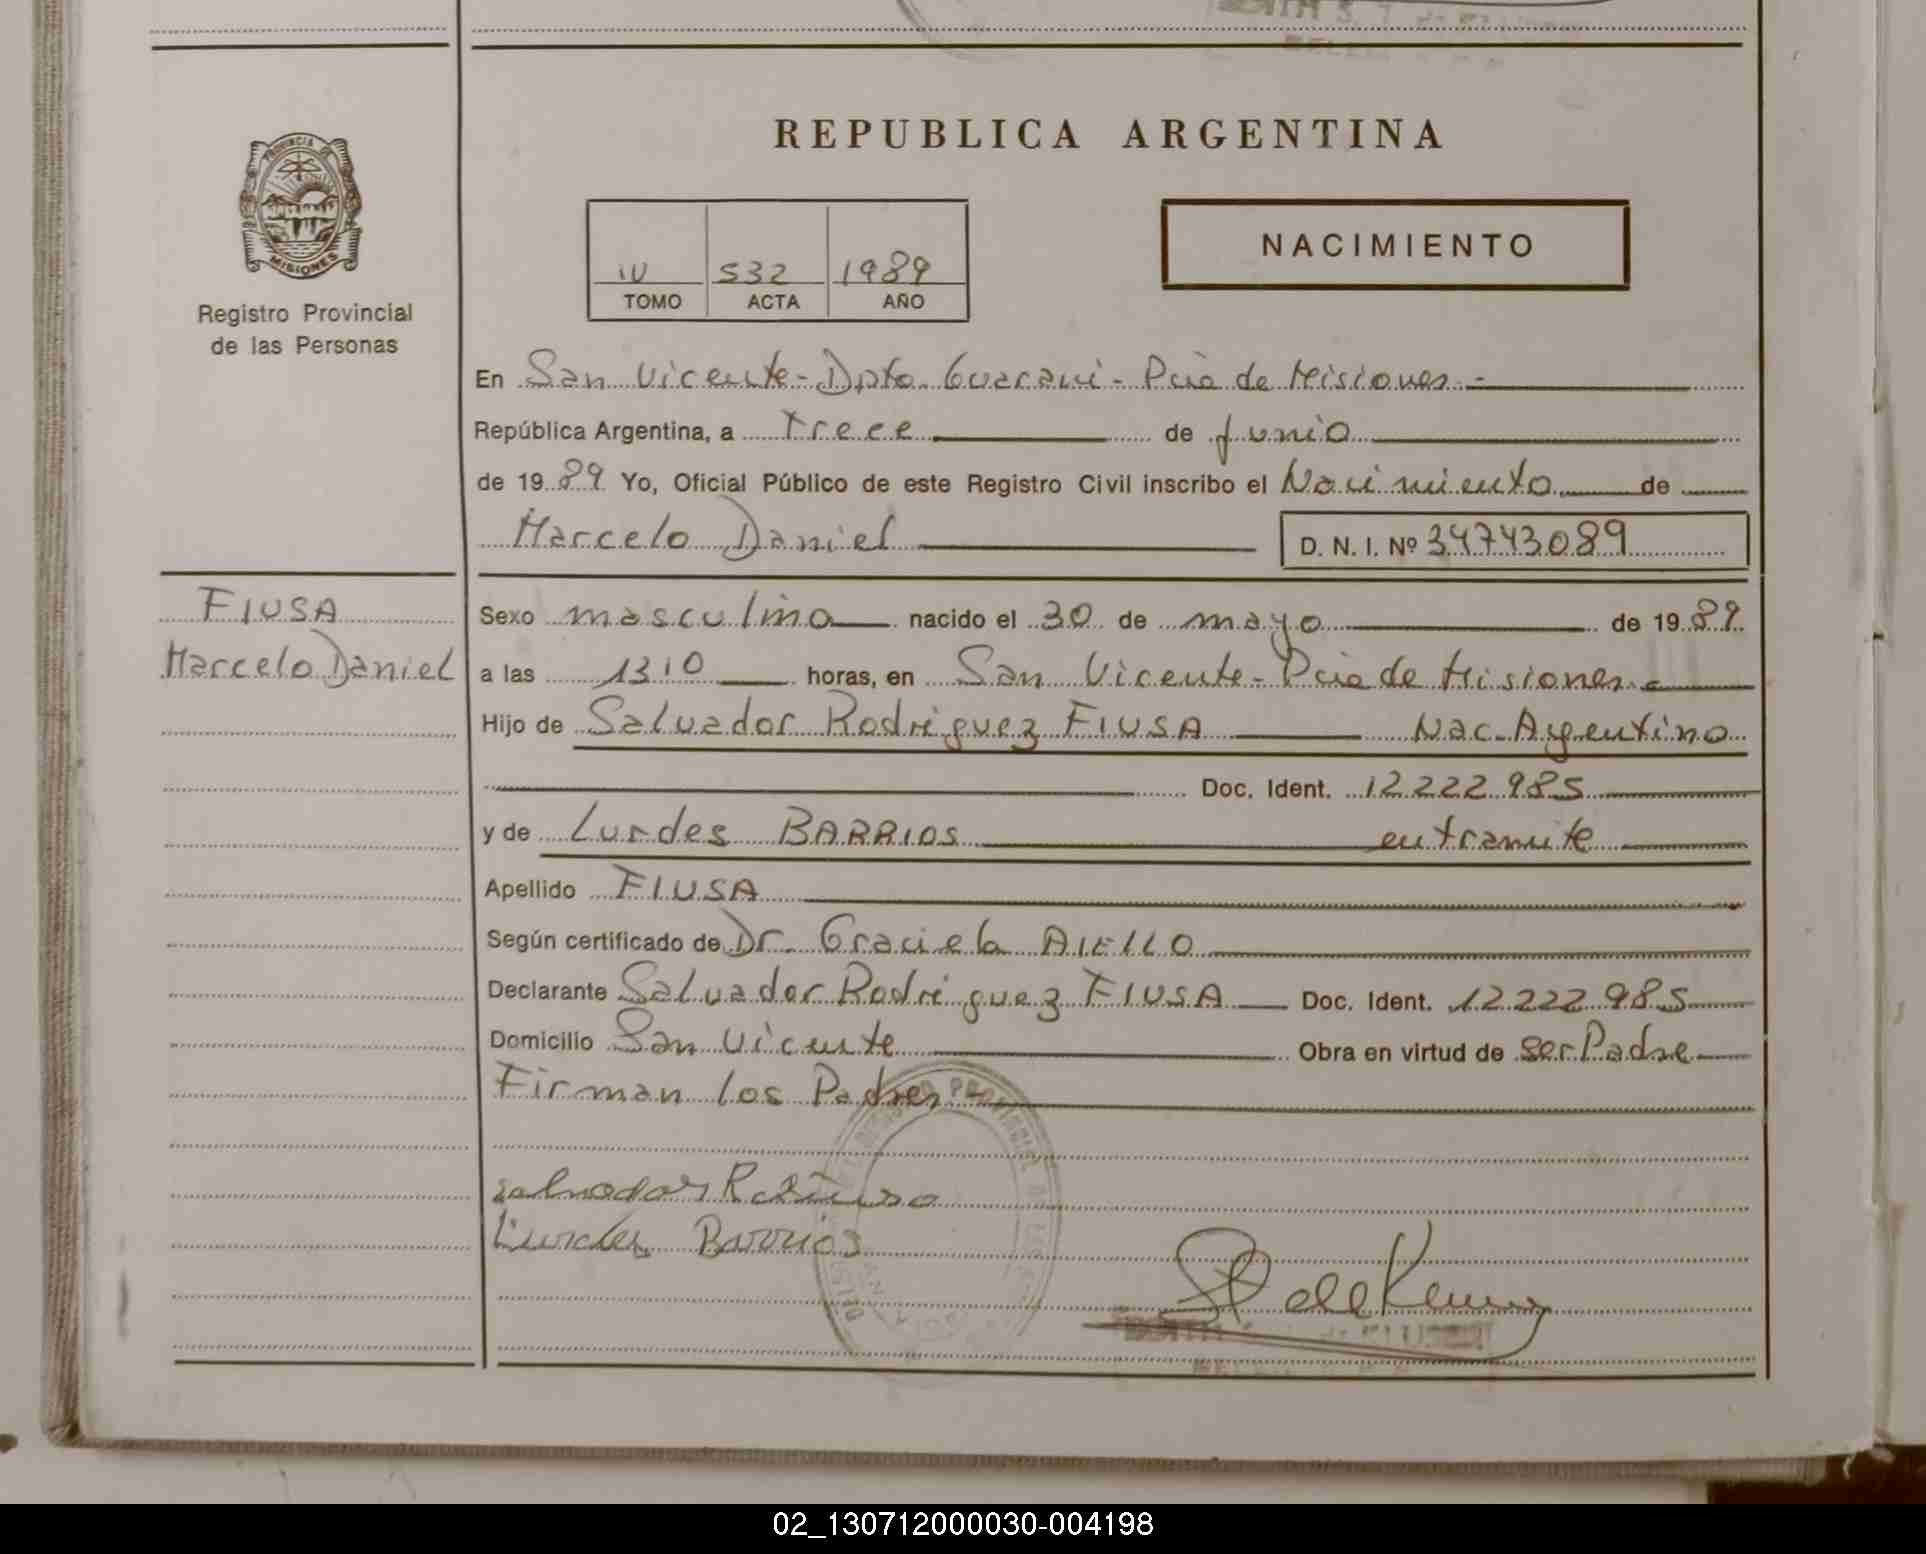 REPUBLICA ARGENTINA
PROVINCIA DE
MISIONES
Registro Provincial
de las Personas
IV 532 1989
TOMO ACTA AÑO
NACIMIENTO
En San Vicente - Dpto. Guarani - Pcia de Misiones -
República Argentina, a Trece de Junio
de 1989 Yo, Oficial Público de este Registro Civil inscribo el Nacimiento de
Marcelo Daniel D. N. I. Nº 34743089
FIUSA
Marcelo Daniel
Sexo masculino nacido el 30 de mayo de 1989.
a las 1310 horas, en San Vicente - Pcia de Misiones.
Hijo de Salvador Rodriguez FIUSA Nac. Argentino
Doc. Ident. 12.222.985
y de Lurdes BARRIOS en tramite
Apellido FIUSA
Según certificado de Dr. Graciela AIELLO
Declarante Salvador Rodriguez FIUSA Doc. Ident. 12.222.985
Domicilio San Vicente Obra en virtud de ser Padre
Firman los Padres
Salvador R. Fiusa
Lurdes Barrios
02_130712000030-004198